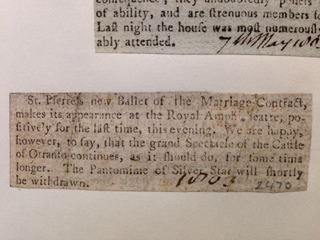 consequence, they undoubtedly possess
of ability, and are strenuous members
Last night the house was most numerously
ably attended. 7th May 180
St. Pierre's new Ballet of the Marriage Contract,
makes its appearance at the Royal Amphitheatre, po-
sitively for the last time, this evening. We are happy,
however, to say, that the grand Spectacle of the Castle
of Otranto continues, as it should do, for some time
longer. The Pantomime of Silver Star will shortly
be withdrawn. 1803 2470